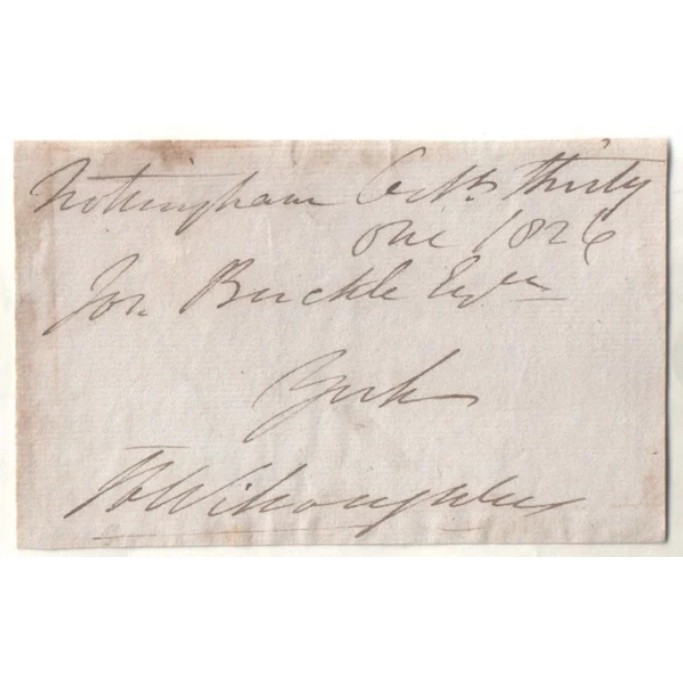 Nottingham Octr. thirty
one 1826
Jos. Buckle Esqre
York
H Willoughby